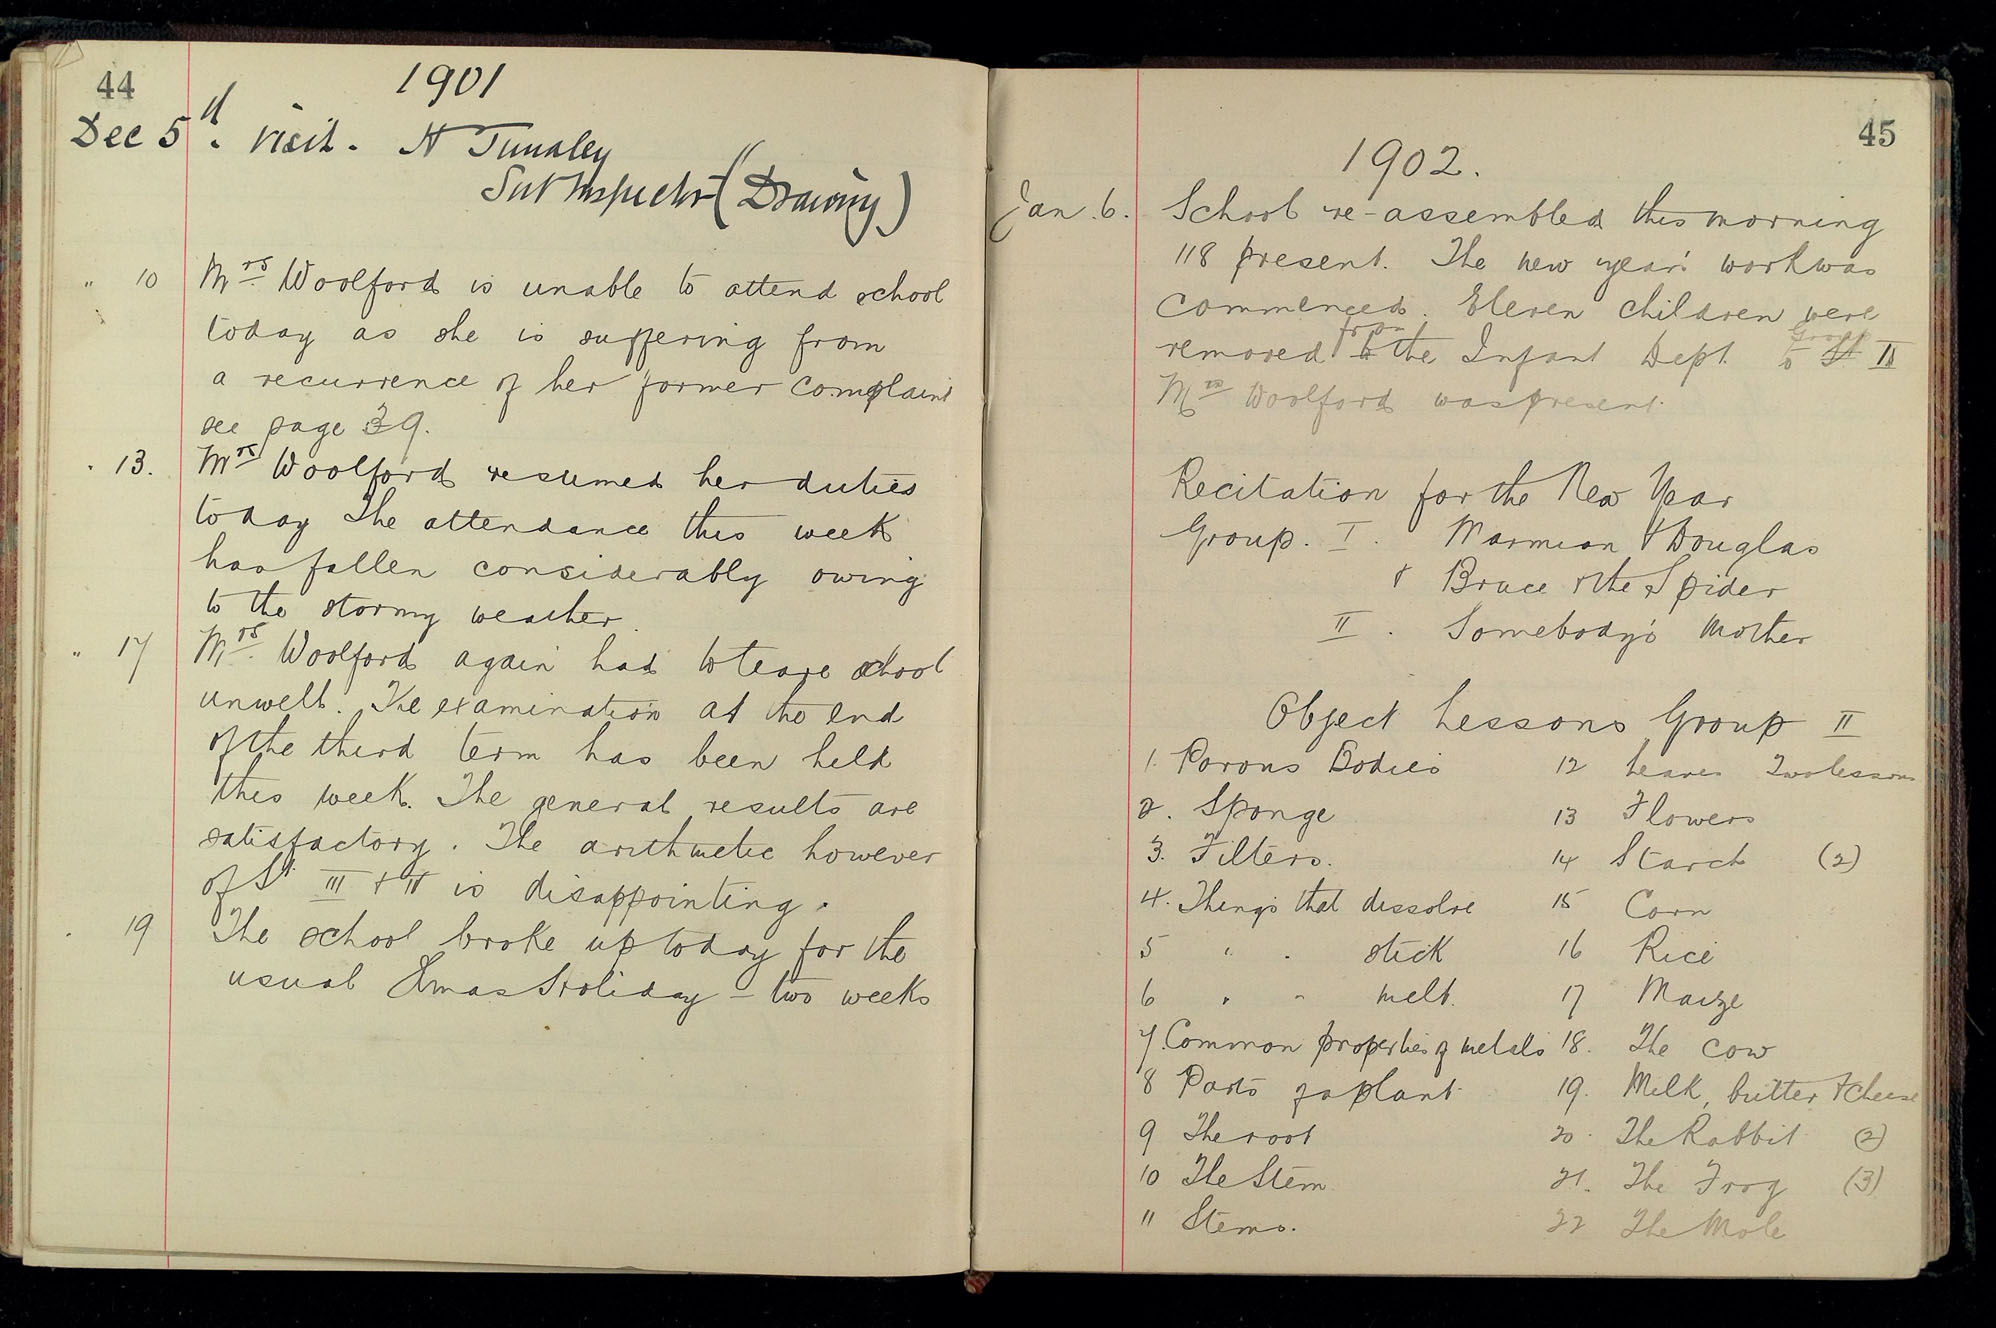 44
1901
Dec 5th. visit. H Tunaley
Sub Inspector (Drawing)
" 10 Mrs Woolford is unable to attend school
today as she is suffering from
a recurrence of her former complaint
see page 39.
" 13. Mrs Woolford resumed her duties
today The attendance this week
has fallen considerably owing
to the stormy weather.
" 17 Mrs. Woolford again had to leave school
unwell. The examination at the end
of the third term has been held
this week. The general results are
satisfactory. The arithmetic however
of St III & IV is disappointing.
" 19 The school broke up today for the
usual Xmas Holiday – two weeks
45
1902.
Jan. 6. School re-assembled this morning
118 present. The new year's work was
commenced. Eleven children were
removed from to the Infant Dept. to Group St II
Mrs Woolford was present.
Recitation for the New Year
Group. I. Marmion & Douglas
& Bruce & the Spider
II. Somebody's Mother
Object Lessons Group II
1. Porous Bodies 12 Leaves Two lessons
2. Sponge 13 Flowers
3. Filters. 14 Starch (2)
4. Things that dissolve 15 Corn
5 " " stick 16 Rice
6 " " melt. 17 Maize
7. Common properties of metals 18. The Cow
8 Parts of a plant 19. Milk, butter & cheese
9 The root 20. The Rabbit (2)
10 The Stem 21. The Frog (3)
11 Stems. 22 The Mole